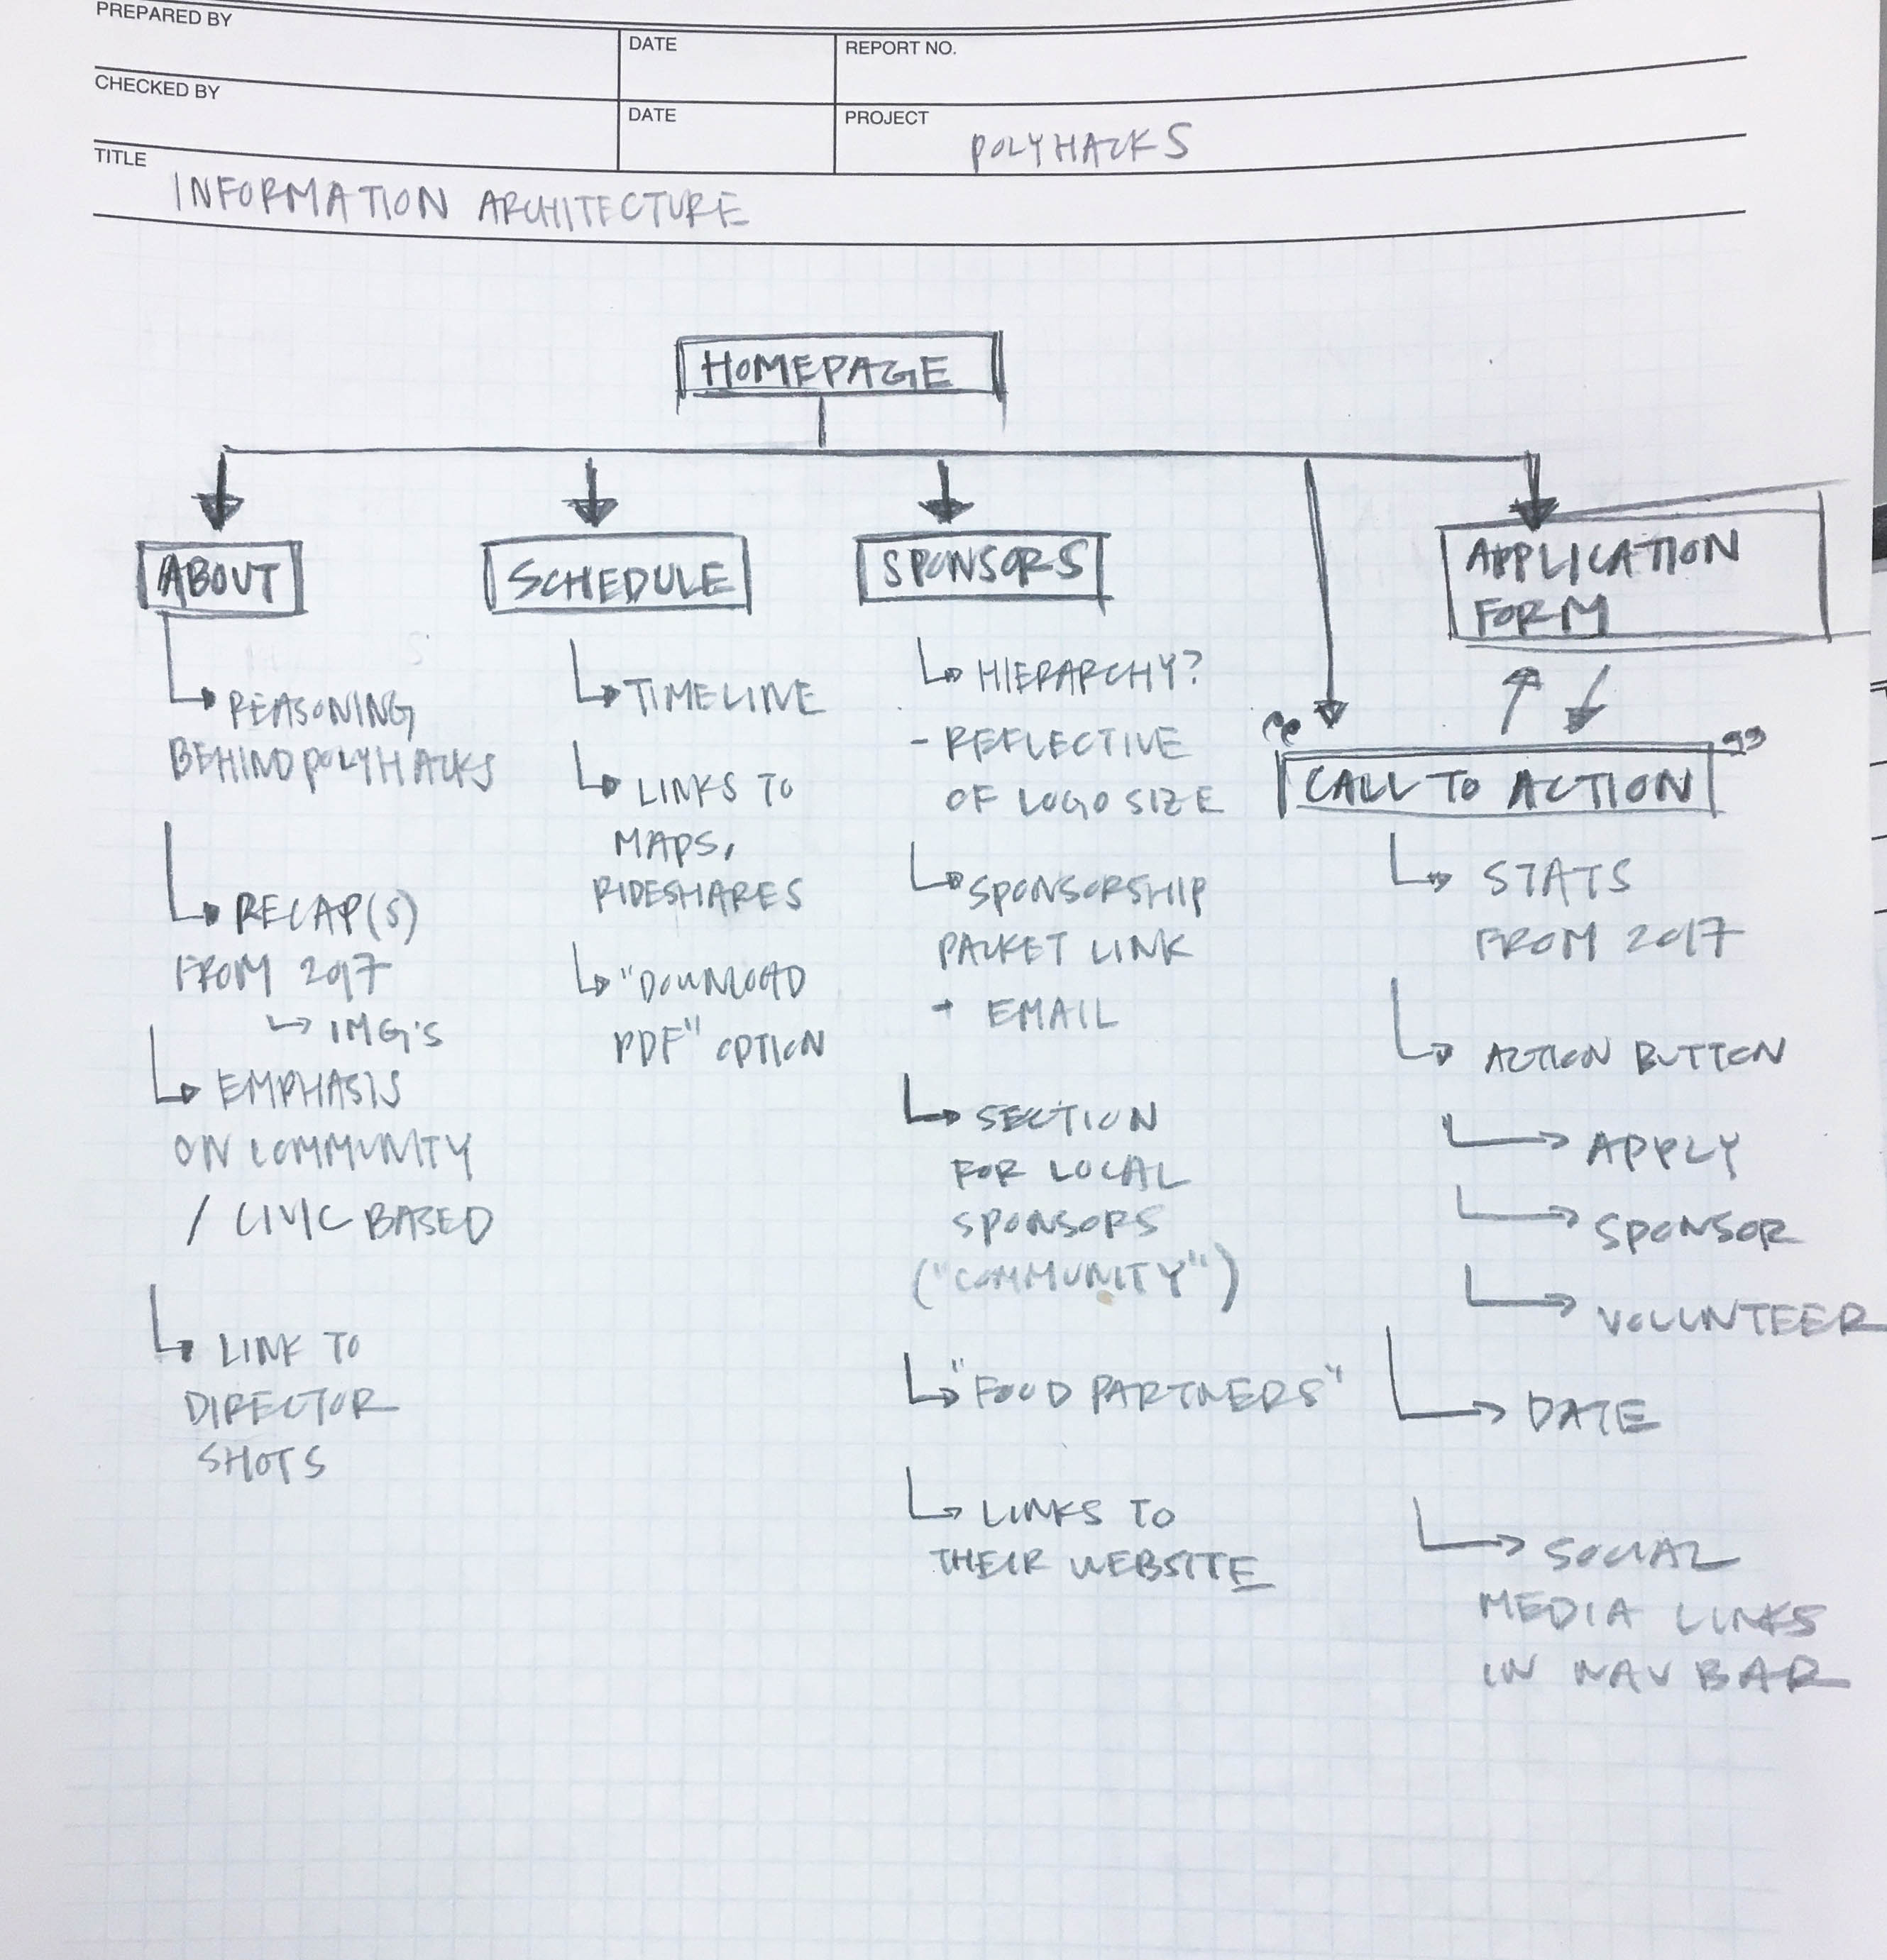 PREPARED BY
DATE
REPORT NO.
CHECKED BY
DATE
PROJECT
POLYHACKS
TITLE
INFORMATION ARCHITECTURE
HOMEPAGE
ABOUT
REASONING
BEHIND POLYHACKS
RECAP(S)
FROM 2017
IMG'S
EMPHASIS
ON COMMUNITY
/ CIVIC BASED
LINK TO
DIRECTOR
SHOTS
SCHEDULE
TIMELINE
LINKS TO
MAPS,
RIDESHARES
"DOWNLOAD
PDF" OPTION
SPONSORS
HIERARCHY?
- REFLECTIVE
OF LOGO SIZE
SPONSORSHIP
PACKET LINK
+ EMAIL
SECTION
FOR LOCAL
SPONSORS
("COMMUNITY")
"FOOD PARTNERS"
LINKS TO
THEIR WEBSITE
APPLICATION
FORM
" CALL TO ACTION "
STATS
FROM 2017
ACTION BUTTON
APPLY
SPONSOR
VOLUNTEER
DATE
SOCIAL
MEDIA LINKS
IN NAV BAR